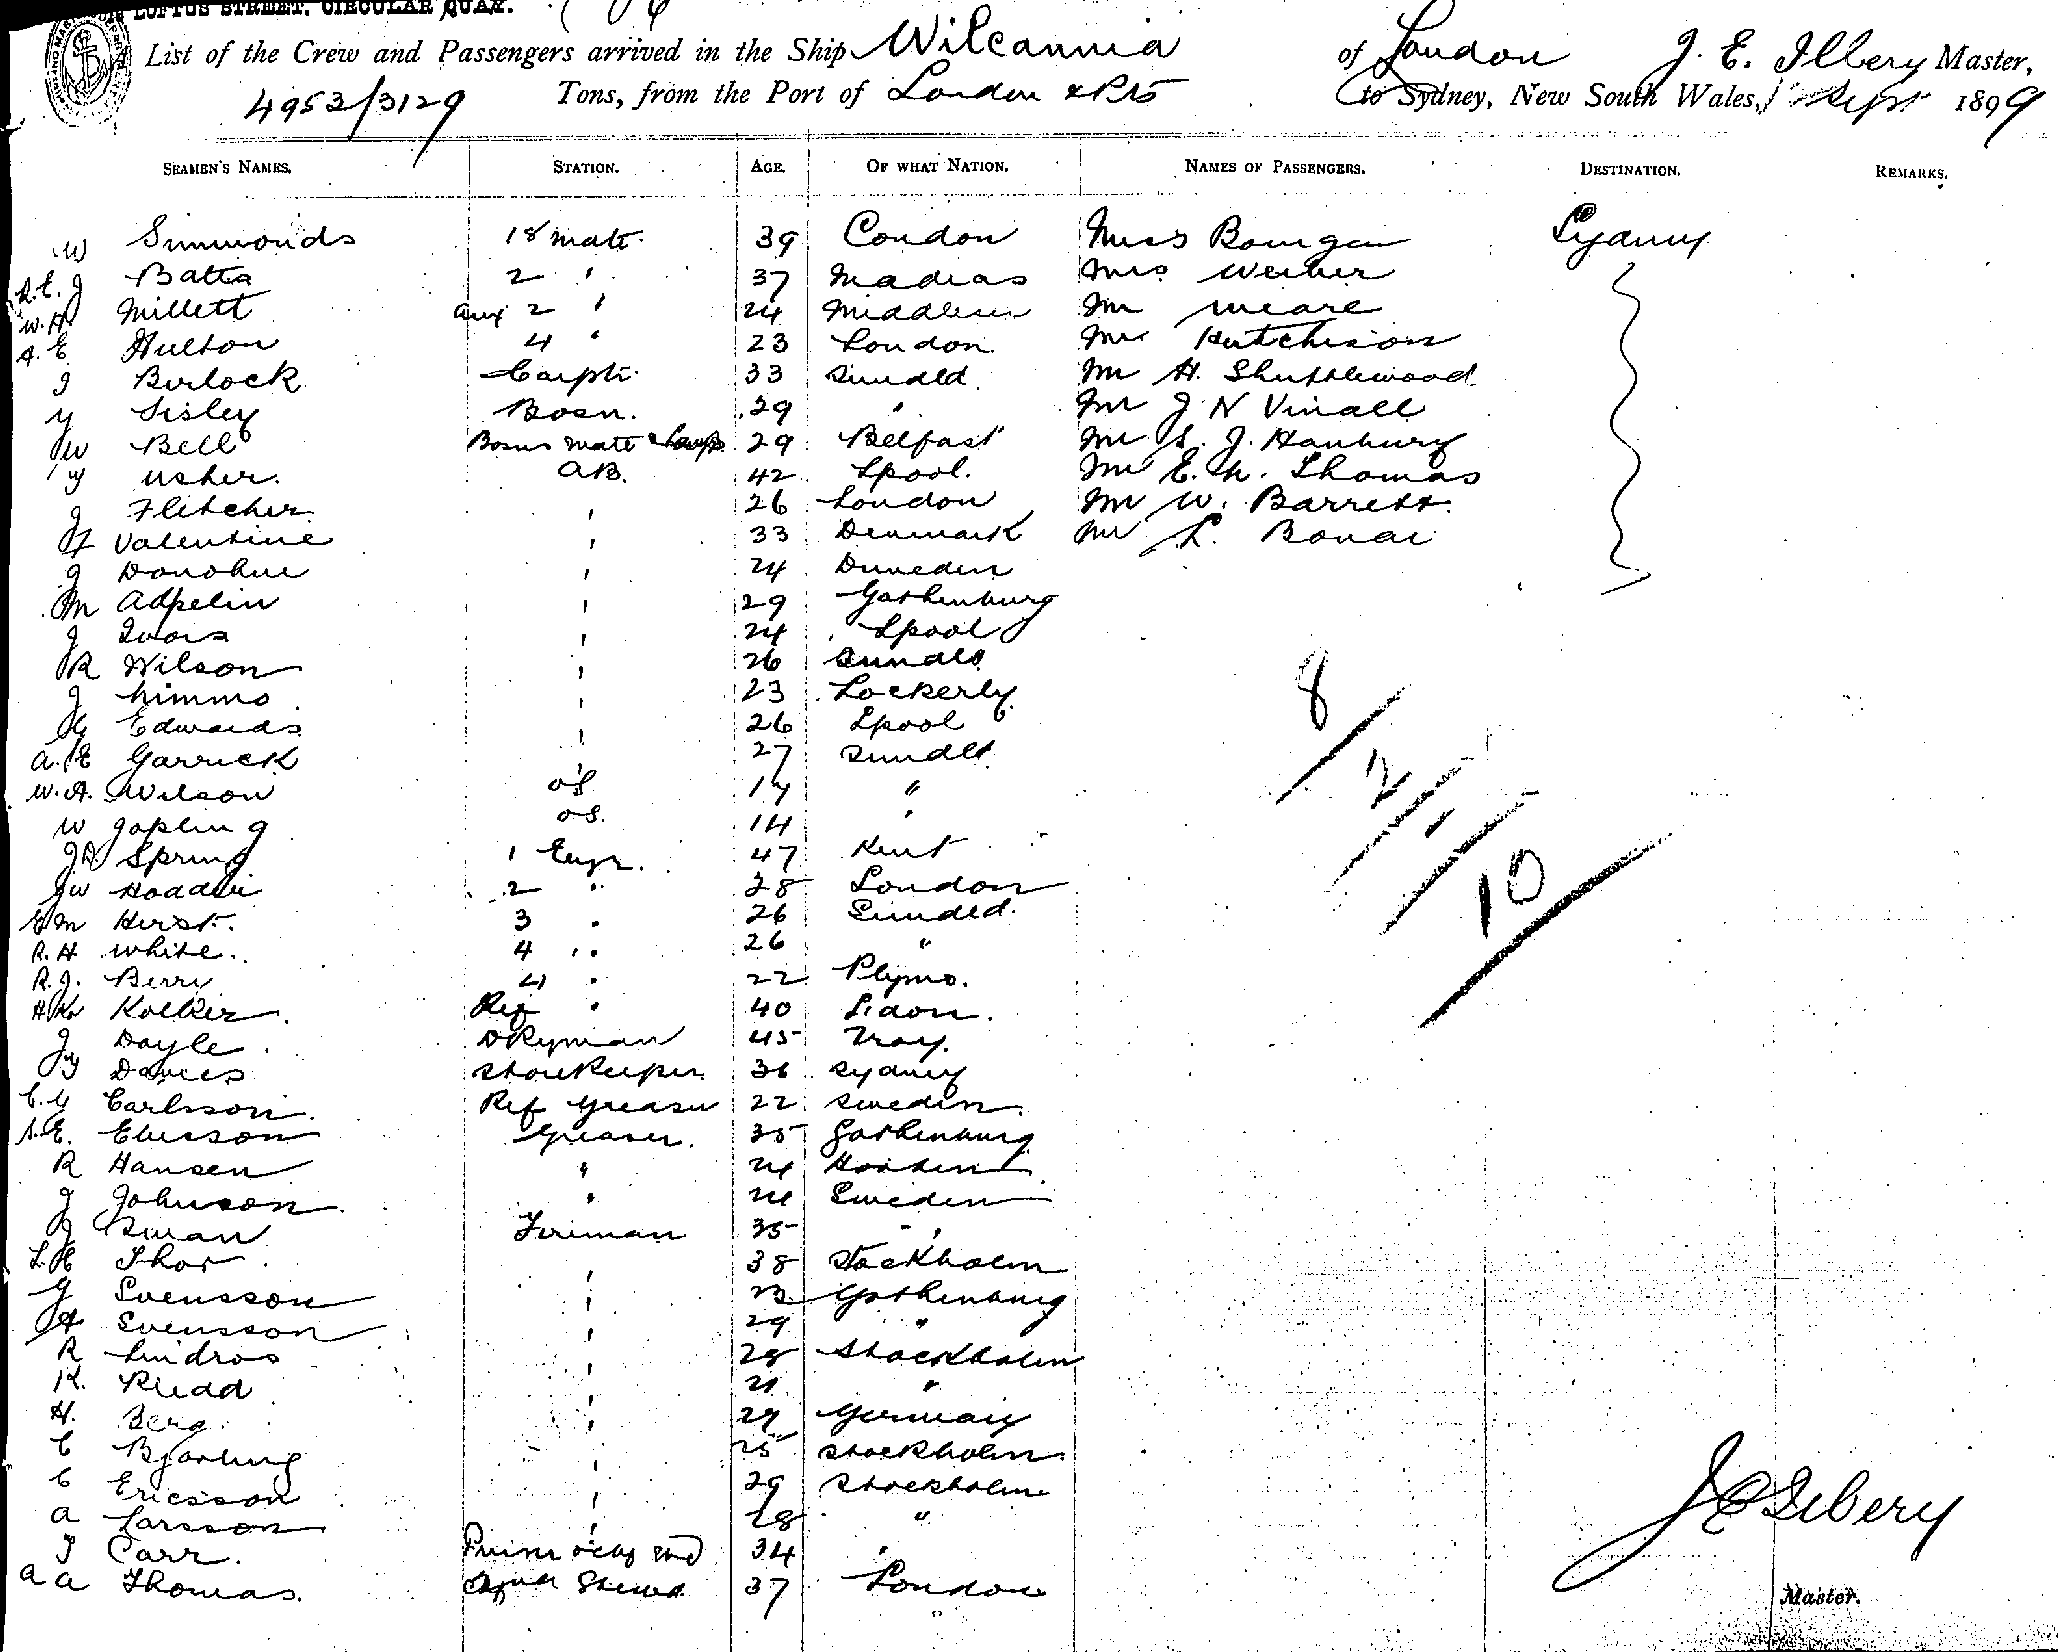 LOFTUS STREET, CIRCULAR QUAY.
List of the Crew and Passengers arrived in the Ship Wilcannia of London J. E. Ilbery Master,
4953/3129 Tons, from the Port of London & Pts to Sydney, New South Wales, 1 Sept 1899
SEAMEN'S NAMES. STATION. AGE. OF WHAT NATION. NAMES OF PASSENGERS. DESTINATION. REMARKS.
W Simmonds 1st mate 39 London Miss Sydney
R.E. J Batts 2 " 37 Madras Mrs
W.H. Millett 2 " 24 Middlesex Mr Weare
A. E Hulton 4 " 23 London Mr Hutchison
J Burlock Carptr 33 Sundld. Mr H. Shuttlewood
Y Sisley Bosn. 29 " Mr J N Vinall
W Bell Bosns mate & Lamps 29 Belfast Mr S. J. Hanbury
Usher. AB. 42 Lpool. Mr E. N. Thomas
J Fletcher " 26 London Mr W. Barrett.
Valentine " 33 Denmark Mr L. Bonar
J Donohue " 24 Dunedin
M Adpelin " 29 Gothenburg
J Ivors " 24 Lpool
R Wilson " 26 Sundld
J Nimmo " 23 Lockerby
Edwards " 26 Lpool
A. E Garrick " 27 Sundld
W. A. Wilson OS 17 "
W Jopling OS. 14 "
J R Spring 1 Engr. 47 Kent
J W 2 " 28 London
E M Hirst. 3 " 26 Sundld.
R. H White. 4 " 26 "
R. J. Berry 4 " 22 Plymo.
Kolker Ref " 40
J Doyle Dkyman 45 Troy.
Davies Storekeeper 36 Sydney
C. G Carlsson. Ref Greaser 22 Sweden.
Greaser. 35 Gothenburg
R Hansen " 24
J Johnson " 24 Sweden
J Swan Fireman 35 "
Thor " 38 Stockholm
G Svensson " 23 Gothenburg
A Svensson " 29 "
R Lindros " 28 Stockholm
K. Rudd " 21 "
H. Berg " 27 Germany
C Bjorling " 25 Stockholm
C Ericsson " 29 Stockholm
A Larsson " 28 "
J Carr. 34 "
A A Thomas. 37 London
8
2
10
J E Ilbery
Master.